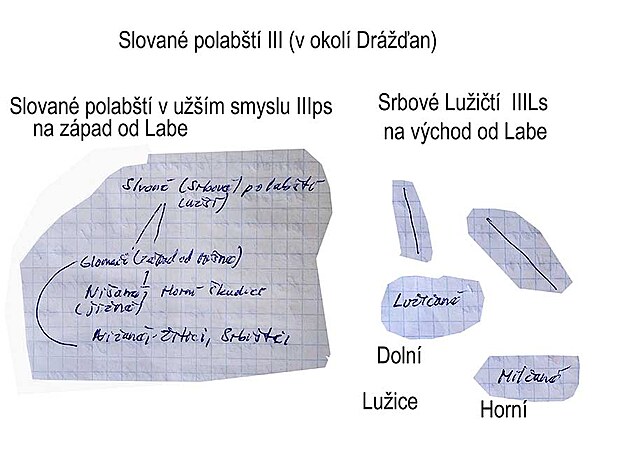 Slované polabští III (v okolí Drážďan)
Slované polabští v užším smyslu IIIps
na západ od Labe
Srbové Lužičtí IIILs
na východ od Labe
(Srbové) polabští
(užší)
Glomači (západ od
Nišané Horní Škudici
(jižně)
Nižané, Žitici, Srbištěi
Lužičané
Dolní
Lužice
Milčané
Horní